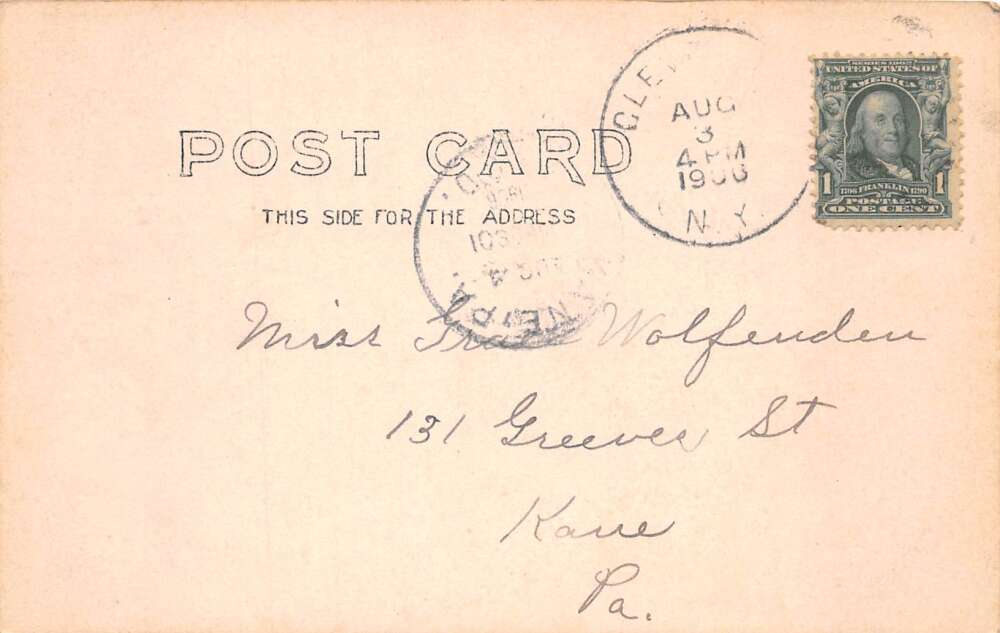 SERIES 1902
UNITED STATES OF
AMERICA
1 1706 FRANKLIN 1790 1
POSTAGE
ONE CENT
AUG
3
4 PM
N.Y.
POST CARD
THIS SIDE FOR THE ADDRESS
NE, PA.
Miss Grace Wolfenden
131 Greeves St
Kane
Pa.